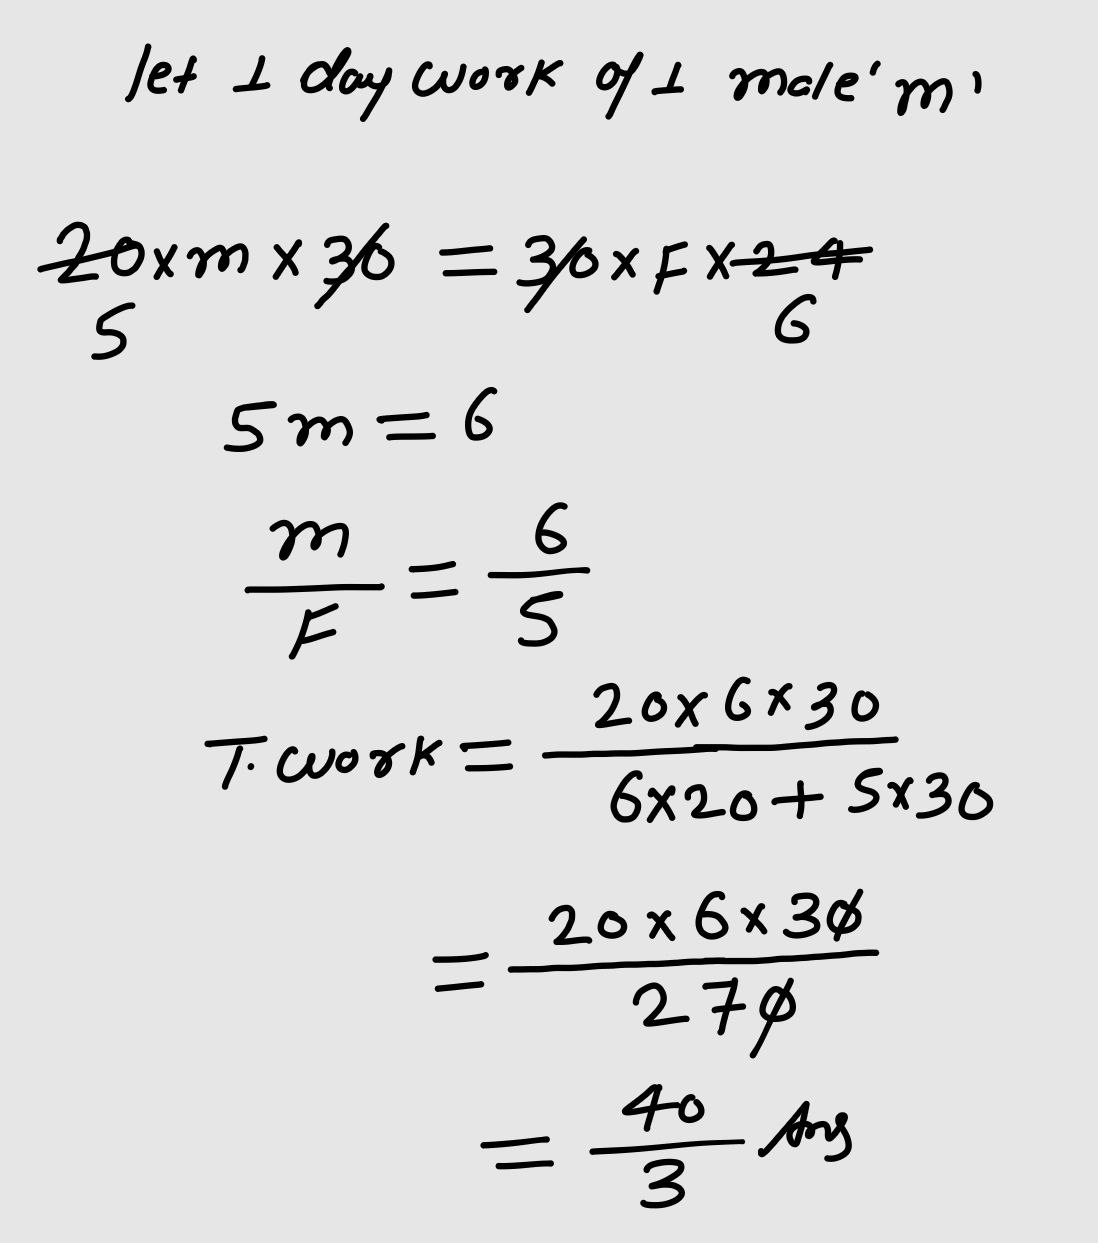 let 1 day work of 1 male 'm'
20 x m x 30 = 30 x F x 24
5 6
5m = 6
m/F = 6/5
T. work = 20 x 6 x 30 / 6 x 20 + 5 x 30
= 20 x 6 x 30 / 270
= 40/3 Ans